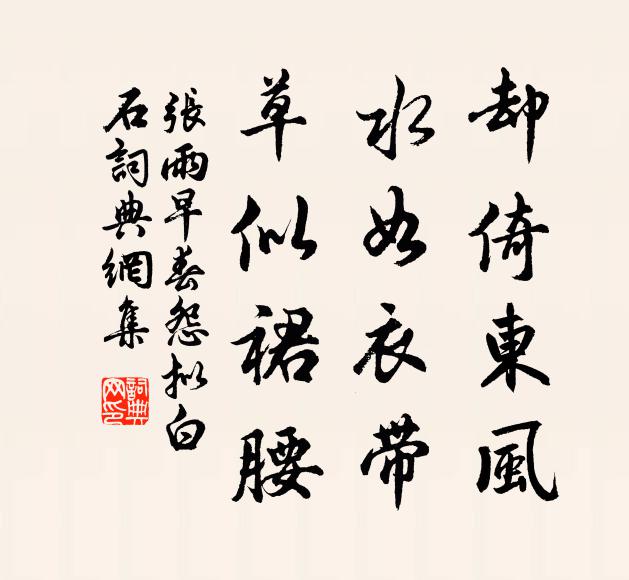 却倚東風
水如衣帶
草似裙腰
張雨早春怨擬白
石詞典網集
詞典網印